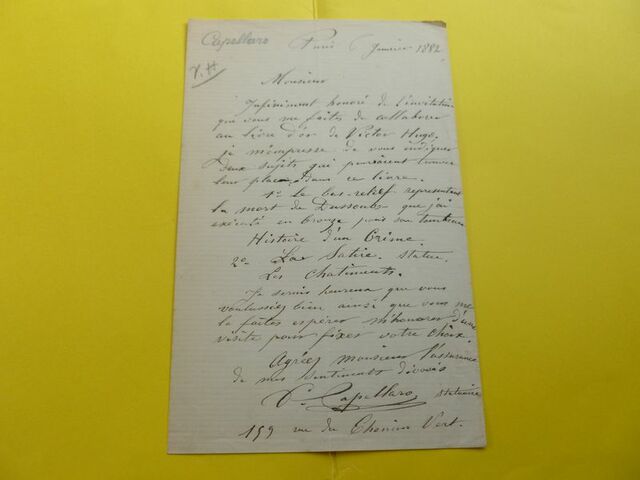 Capellaro Paris 6 Janvier 1882
V. H
Monsieur
Infiniment honoré de l'invitation
que vous me faites de collaborer
au livre d'or de Victor Hugo.
je m'empresse de vous indiquer
deux sujets qui pourraient trouver
leur place, dans ce livre.
1º Le bas-relief représentant
la mort de Dussoubs que j'ai
exécuté en bronze pour son tombeau
Histoire d'un Crime.
2º La Satire. statue.
Les Chatiments.
Je serais heureux que vous
voulussiez bien ainsi que vous me
le faites espérer m'honorer d'une
visite pour fixer votre choix.
Agréez Monsieur l'assurance
de mes sentiments dévoués
Capellaro, statuaire
159 rue du Chemin Vert.